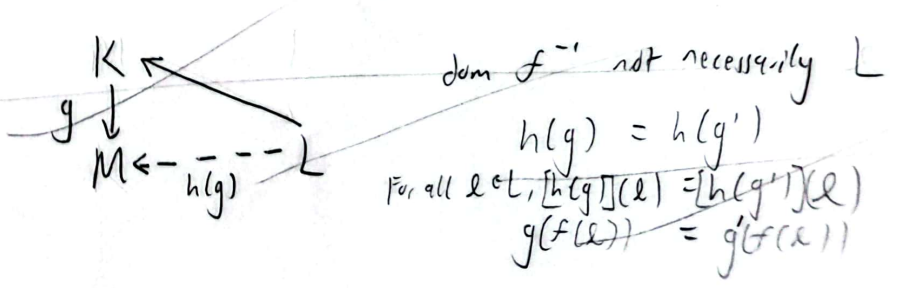 K
g
M
h(g)
L
dom f⁻¹ not necessarily L
h(g) = h(g')
For all l ∈ L, [h(g)](l) = [h(g')](l)
g(f(l)) = g'(f(l))